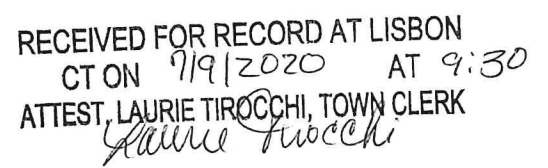 RECEIVED FOR RECORD AT LISBON
CT ON 7/9/2020 AT 9:30
ATTEST, LAURIE TIROCCHI, TOWN CLERK
Laurie Tirocchi